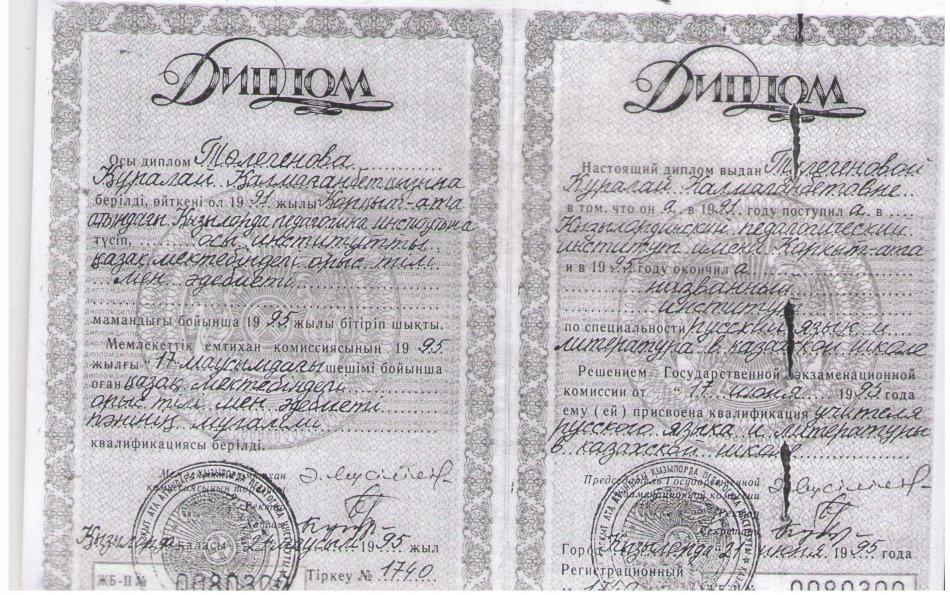 Диплом
Осы диплом Төлегенова
Құралай Қалмағанбетқызына
берілді, өйткені ол 1991 жылы Қорқыт-ата
атындағы Қызылорда педагогика институтына
түсіп, осы институтты
қазақ мектебіндегі орыс тілі
мен әдебиеті
мамандығы бойынша 1995 жылы бітіріп шықты.
Мемлекеттік емтихан комиссиясының 1995
жылғы 17 маусымдағы шешімі бойынша
оған қазақ мектебіндегі
орыс тілі мен әдебиеті
пәнінің мұғалімі
квалификациясы берілді.
Мемлекеттік емтихан
комиссиясының
Ректор
Хатшы
Қызылорда қаласы 21 маусым 1995 жыл
ЖБ-II № 0080300 Тіркеу № 1740
Диплом
Настоящий диплом выдан Тулегеновой
Куралай Калмаганбетовне
в том, что он а в 1991 году поступил а в
Кзылординский педагогический
институт имени Коркыт ата
и в 1995 году окончил а
названный
институт
по специальности русский язык и
литература в казахской школе
Решением Государственной экзаменационной
комиссии от "17" июня 1995 года
ему (ей) присвоена квалификация учителя
русского языка и литературы
в казахской школе
Председатель Государственной
экзаменационной комиссии
Ректор
Секретарь
Город Кзылорда 21 июня 1995 года
Регистрационный
0080300